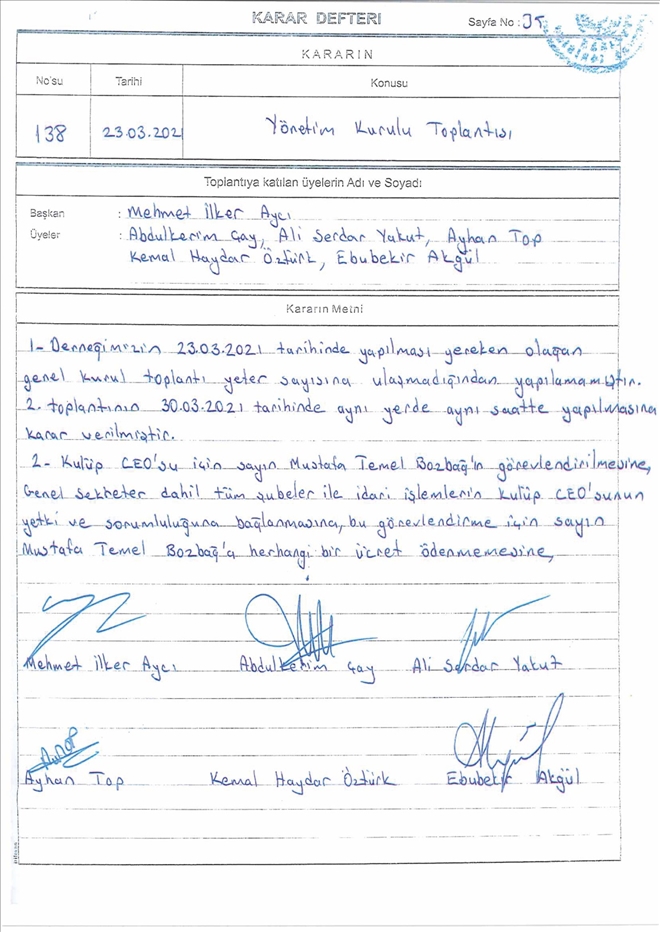 KARAR DEFTERİ
Sayfa No : 35
KARARIN
No'su Tarihi Konusu
138 23.03.202 Yönetim Kurulu Toplantısı
Toplantıya katılan üyelerin Adı ve Soyadı
Başkan : Mehmet İlker Aycı
Üyeler : Abdulkerim Çay, Ali Serdar Yakut, Ayhan Top
Kemal Haydar Öztürk, Ebubekir Akgül
Kararın Metni
1- Derneğimizin 23.03.2021 tarihinde yapılması gereken olağan
genel kurul toplantı yeter sayısına ulaşmadığından yapılamamıştır.
2. toplantının 30.03.2021 tarihinde aynı yerde aynı saatte yapılmasına
karar verilmiştir.
2- Kulüp CEO'su için sayın Mustafa Temel Bozbağ'ın görevlendirilmesine,
Genel sekreter dahil tüm şubeler ile idari işlemlerin Kulüp CEO'sunun
yetki ve sorumluluğuna bağlanmasına, bu görevlendirme için sayın
Mustafa Temel Bozbağ'a herhangi bir ücret ödenmemesine,
Mehmet İlker Aycı Abdulkerim Çay Ali Serdar Yakut
Ayhan Top Kemal Haydar Öztürk Ebubekir Akgül